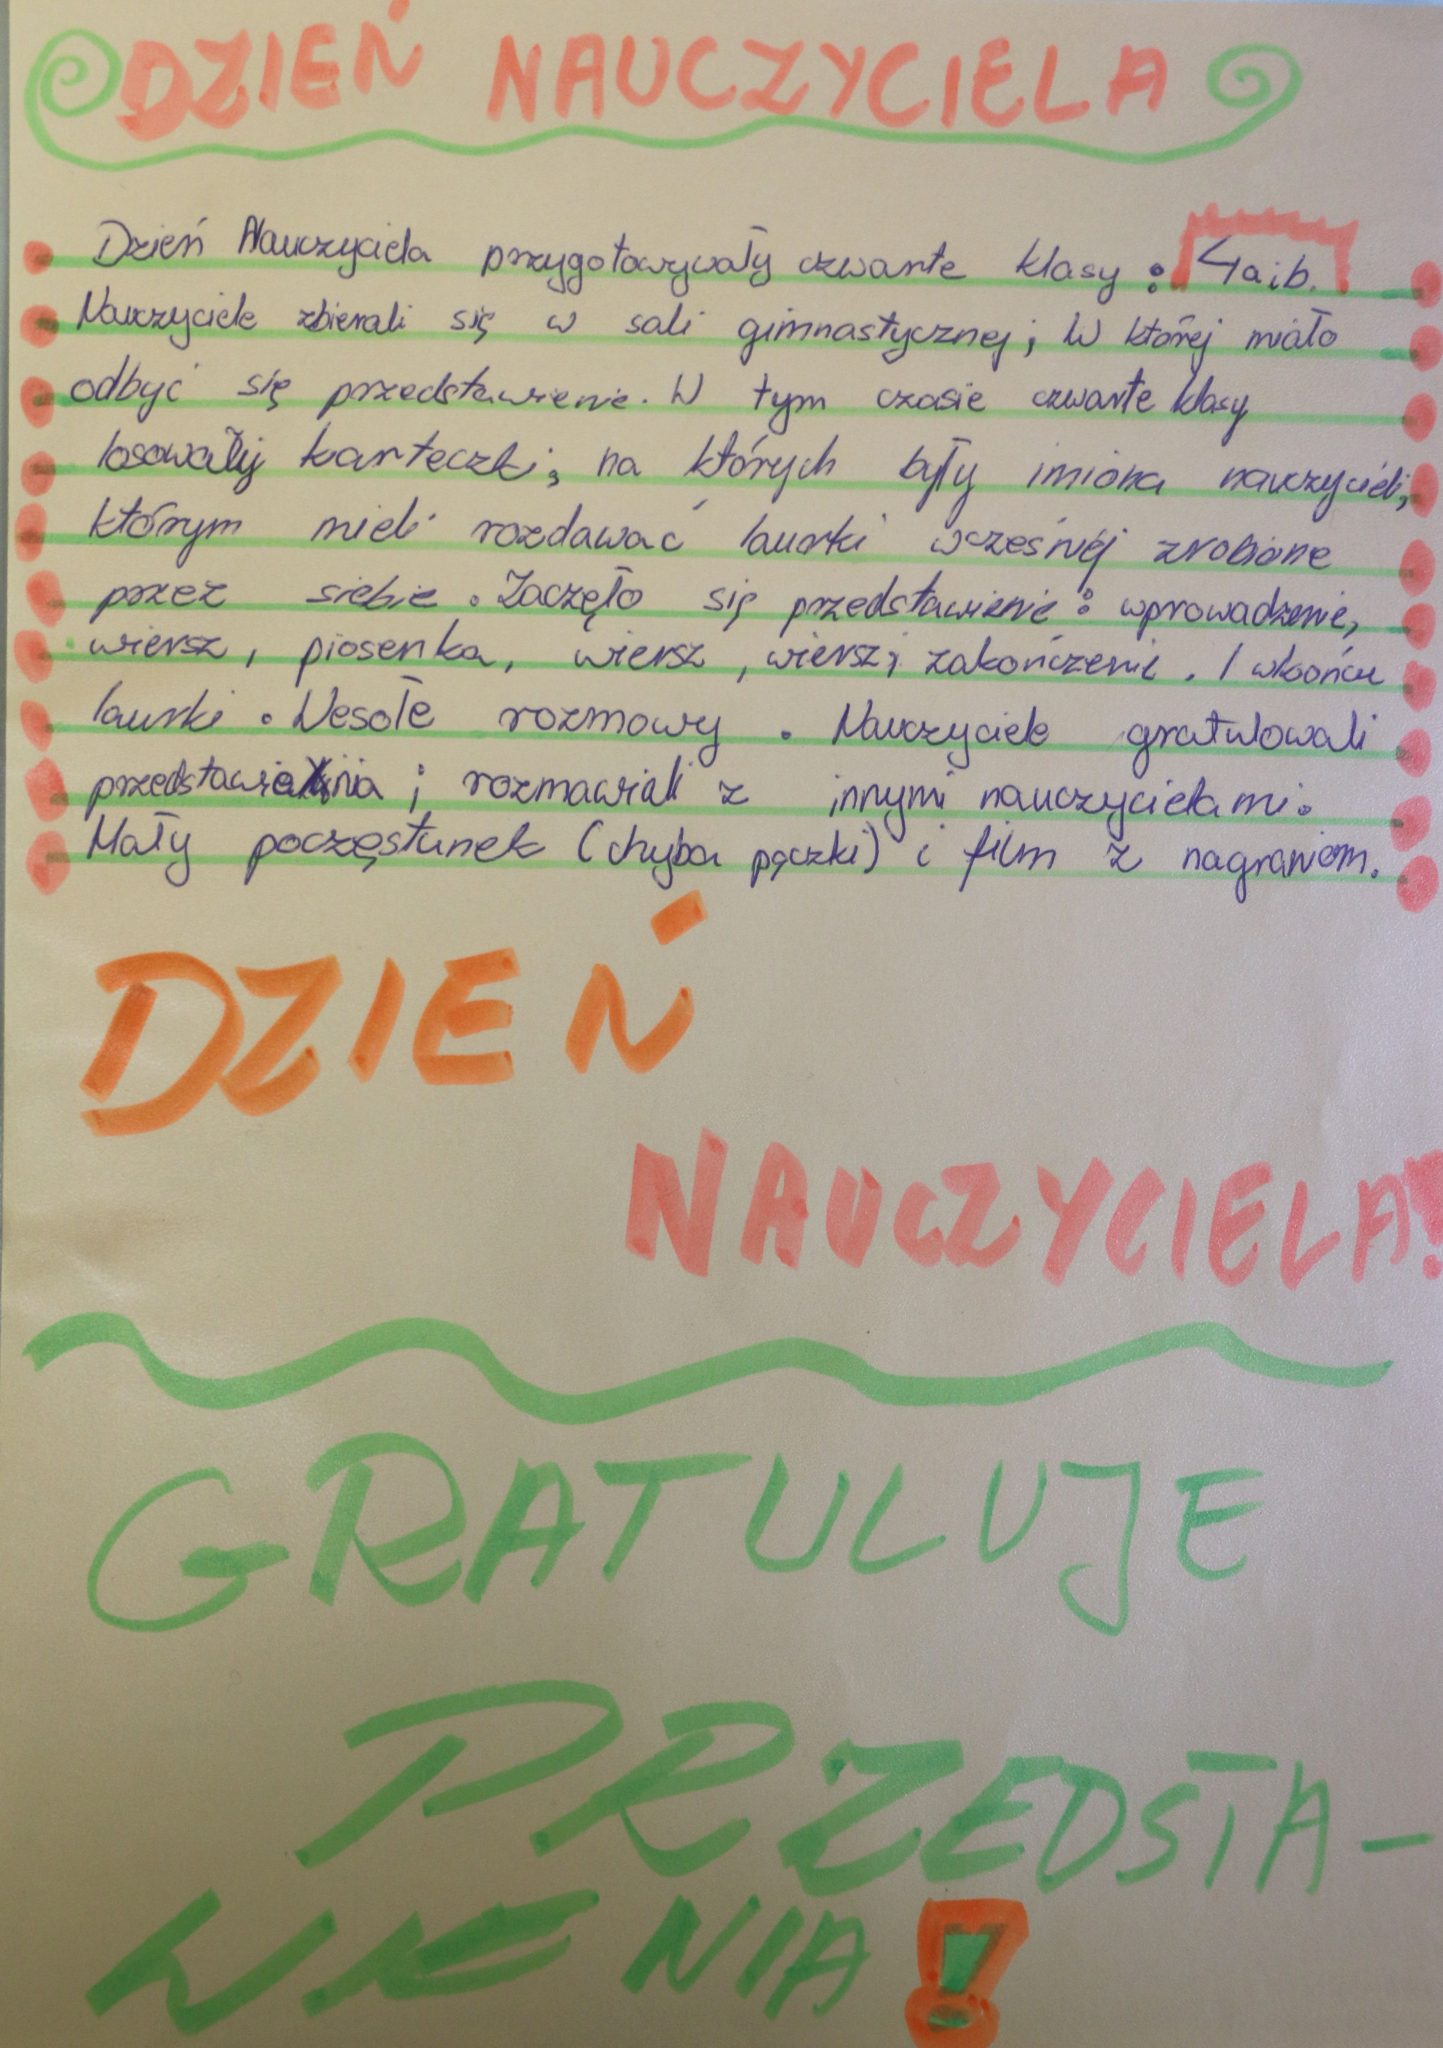 DZIEŃ NAUCZYCIELA
Dzień Nauczyciela przygotowywały czwarte klasy : 4aib.
Nauczyciele zbierali się w sali gimnastycznej, W której miało
odbyć się przedstawienie. W tym czasie czwarte klasy
losowały karteczki, na których były imiona nauczycieli,
którym mieli rozdawać laurki wcześniej zrobione
przez siebie. Zaczęło się przedstawienie: wprowadzenie,
wiersz, piosenka, wiersz, wiersz, zakończenie. I wkońcu
laurki. Wesołe rozmowy. Nauczyciele gratulowali
przedstawienia i rozmawiali z innymi nauczycielami.
Mały poczęstunek (chyba pączki) i film z nagraniem.
DZIEŃ
NAUCZYCIELA!
GRATULUJE
PRZEDSTA-
WIENIA!